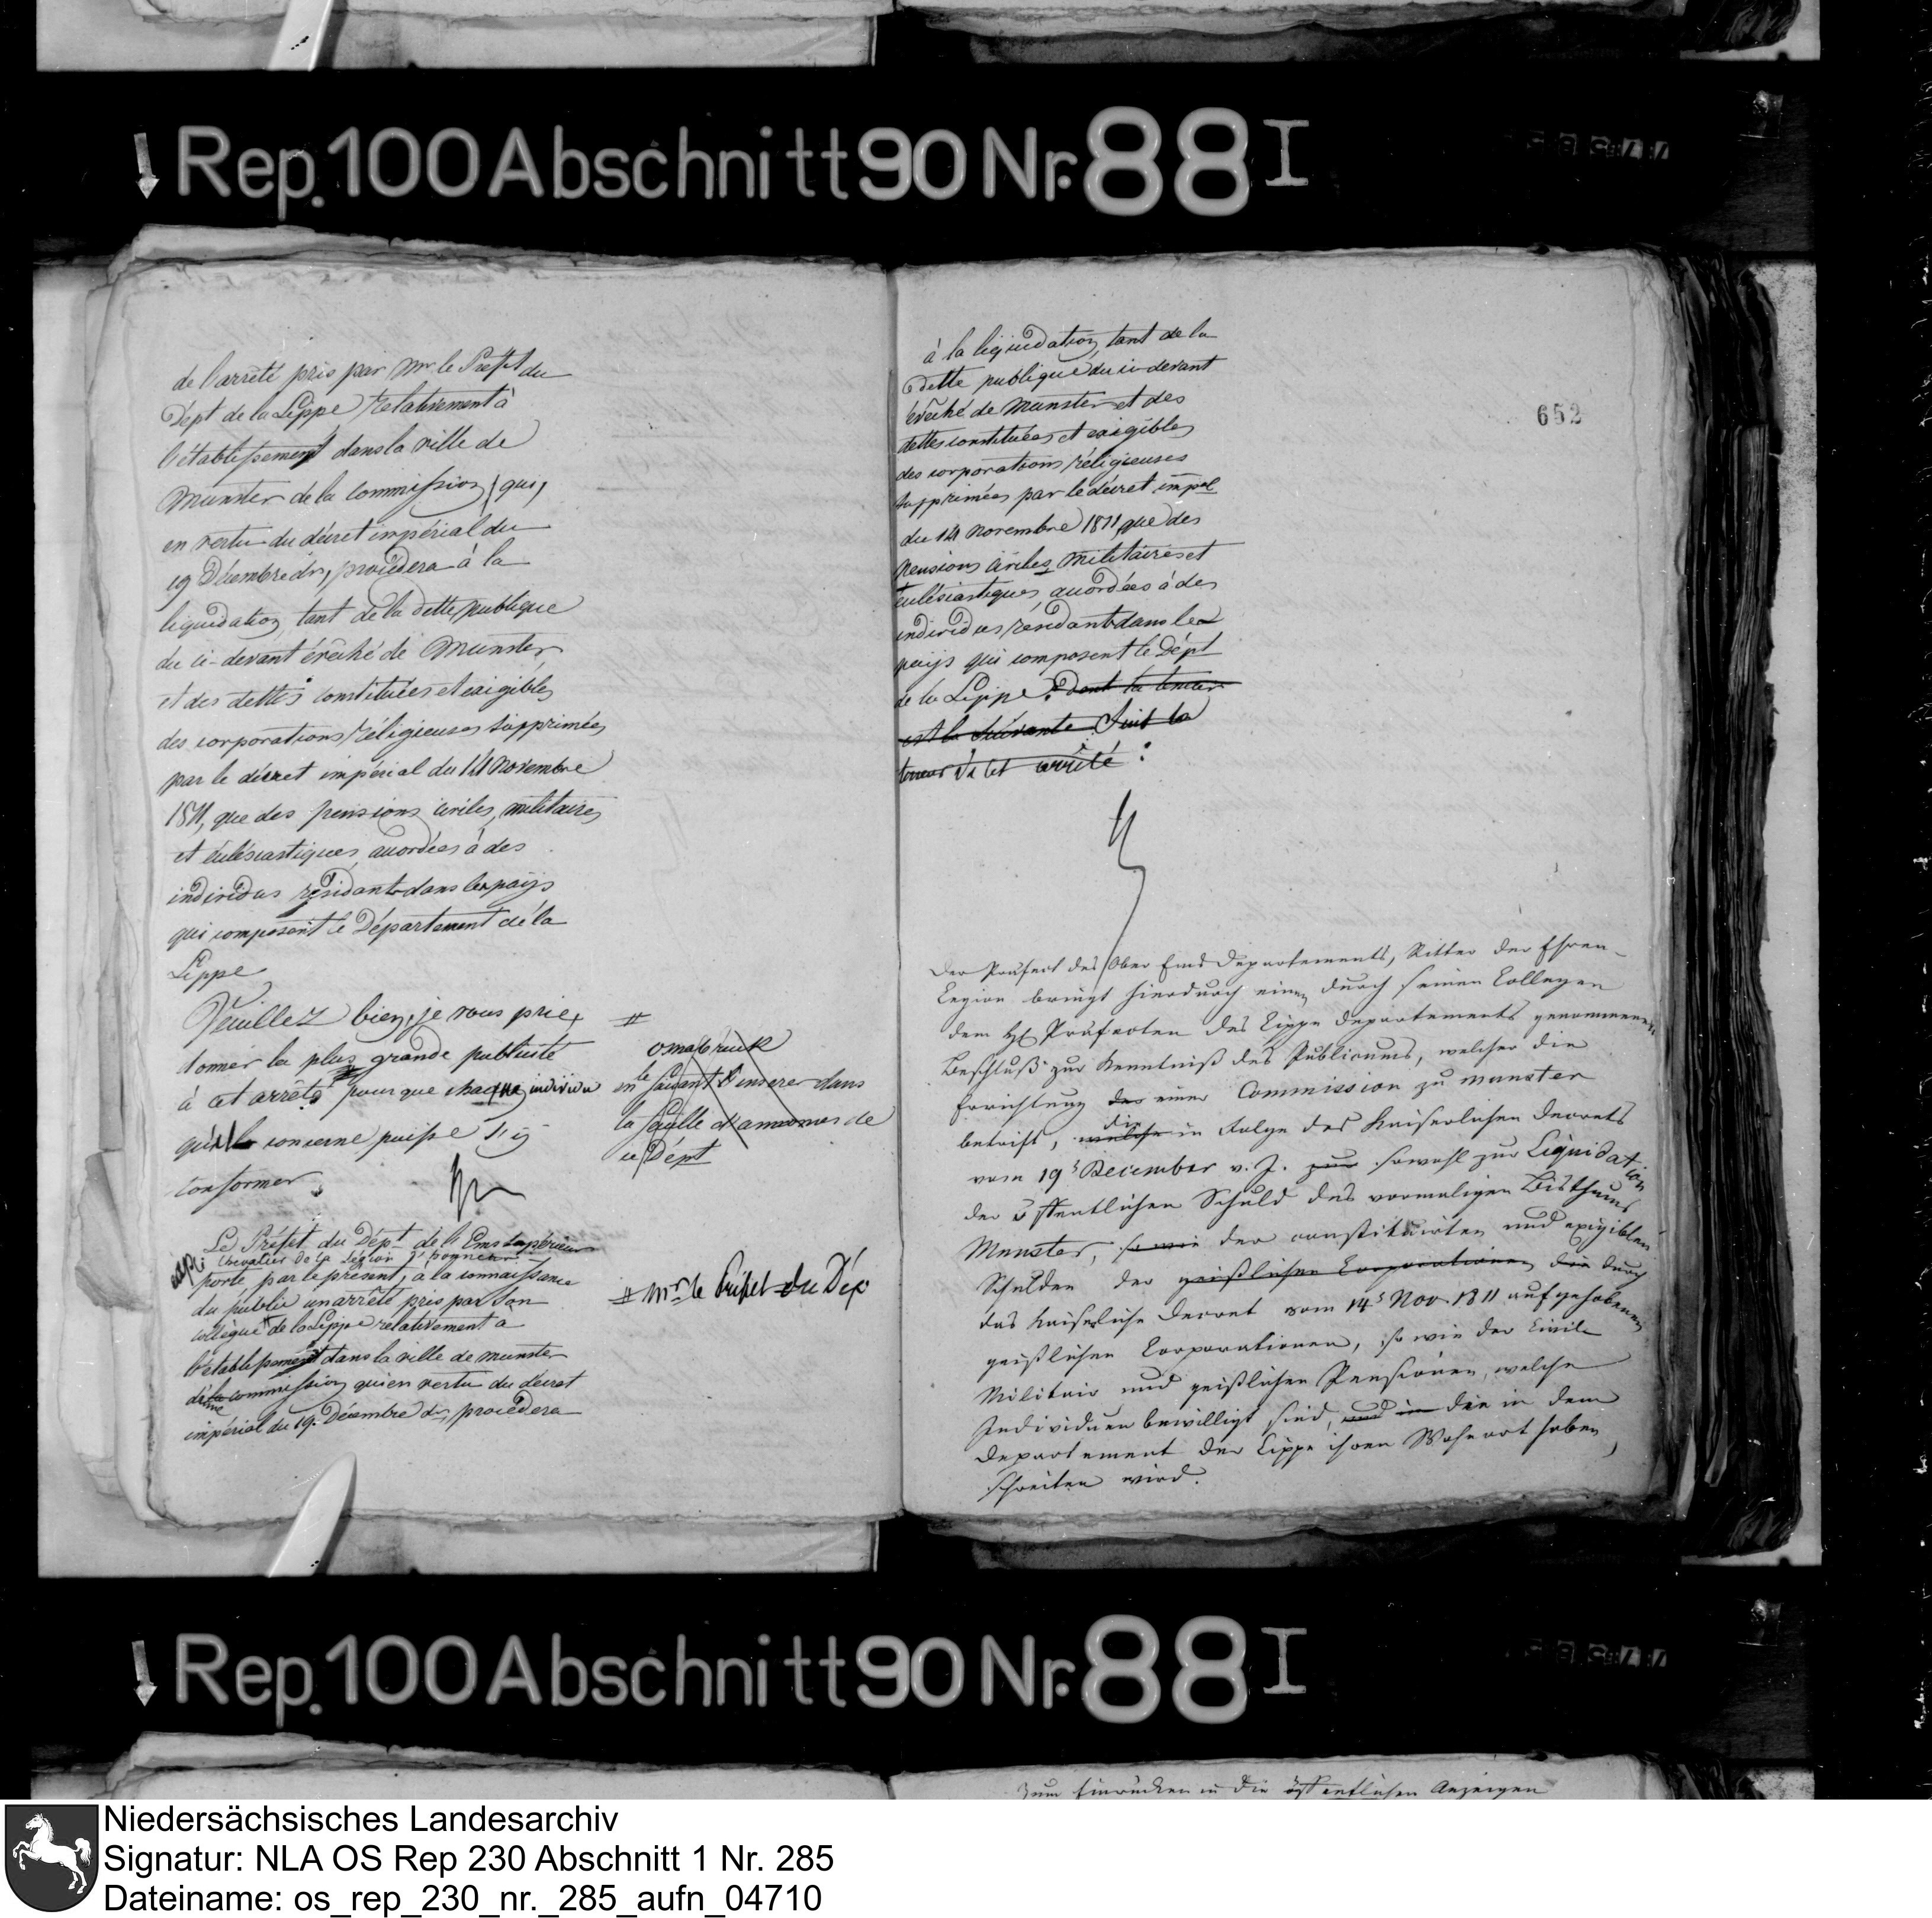 Rep. 100 Abschnitt 90 Nr. 88 I
de l'arrêté pris par Mr le Préfet du
Dépt de la Lippe relativement à
l'établissement dans la ville de
Munster de la commission, qui,
en vertu du décret impérial du
19 Décembre dr, procédera à la
liquidation, tant de la dette publique
du ci-devant évêché de Munster,
et des dettes constituées et exigibles
des corporations réligieuses supprimées
par le décret impérial du 14 Novembre
1811, que des pensions civiles, militaires
et éclésiastiques, accordées à des
individus résidants dans les pays
qui composent le Département de la
Lippe.
Veuillez bien, je vous prie,
donner la plus grande publicité
à cet arrêté pour que chaque individu
qu'il concerne puisse s'y
conformer.
#
Osnabruck
en le faisant d'inserer dans
la feuille d'annonces de
ce Dépt
Le Préfet du Dépt de l'Ems supérieur
Chevalier de la Légion d'honneur
expé
porte par le présent, à la connaissance
du public un arrêté pris par son
collègue # de la Lippe relativement à
l'établissement dans la ville de Munster
de la une commission, qui en vertu du décret
impérial du 19. Décembre dr, procédera
# Mr le Préfet du Dép
652
à la liquidation, tant de la
dette publique du ci-devant
évêché de Munster et des
dettes constituées et exigibles
des corporations réligieuses
supprimées par le décret impal
du 14 Novembre 1811, que des
pensions civiles, militaires et
eclésiastiques, accordées à des
individus résidants dans les
pays qui composent le Dépt
de la Lippe. dont la teneur
est la suivante. Suit la
teneur de cet arrêté:
Der Präfect des Ober Ems Departements, Ritter der Ehren-
Legion bringt hierdurch einen durch seinen Collegen
dem H. Präfecten des Lippe Departements genommenen
Beschluß zur Kenntniß des Publicums, welcher die
Errichtung der einer Commission zu Munster
betrift, welche die in Folge des Kaiserlichen Decrets
vom 19t December v. J. zur sowohl zur Liquidation
der öffentlichen Schuld des vormaligen Bisthums
Munster, so wie der constituirten und exigiblen
Schulden der geistlichen Corporationen die durch
das Kaiserliche Decret vom 14t Nov. 1811 aufgehobenen
geistlichen Corporationen, so wie der Civil
Militair und geistlichen Pensionen, welche
Individuen bewilligt sind, und in die in dem
Departement der Lippe ihren Wohnort haben,
schreiten wird.
Rep. 100 Abschnitt 90 Nr. 88 I
Zum Einrücken in die öffentlichen Anzeigen
Niedersächsisches Landesarchiv
Signatur: NLA OS Rep 230 Abschnitt 1 Nr. 285
Dateiname: os_rep_230_nr._285_aufn_04710